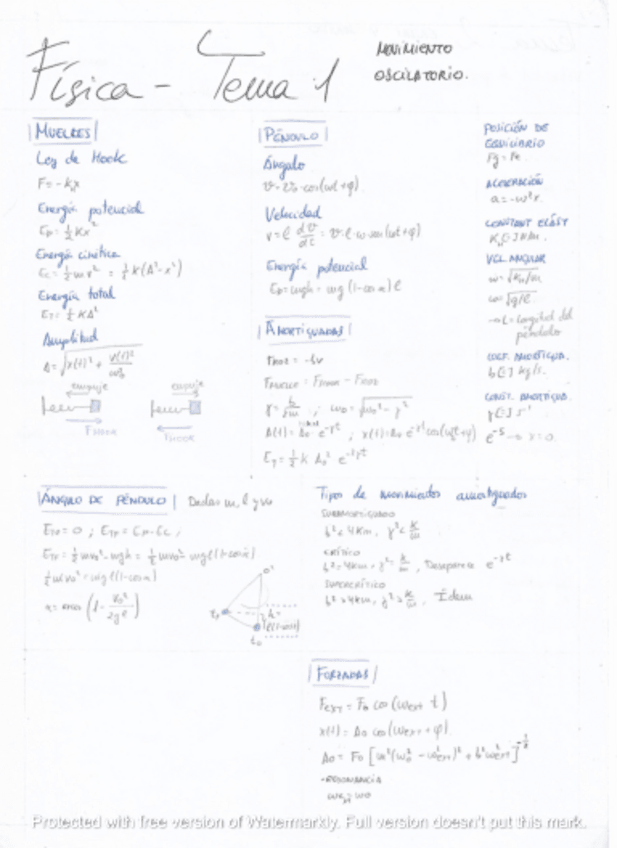 Física - Tema 1
MOVIMIENTO
OSCILATORIO.
MUELLES
Ley de Hook
F = -kx
Energía potencial
Ep = ½ Kx²
Energía cinética
Ec = ½ mv² = ½ K(A² - x²)
Energía total
ET = ½ KA²
Amplitud
A = √(x(t)² + v(t)²/ω₀²)
empuje empuje
FHOOK FHOOK
PÉNDULO
Ángulo
ϑ = ϑ₀ · cos(ωt + φ)
Velocidad
Energía potencial
Ep = mgh = mg (1 - cos α) l
AMORTIGUADAS
Fmor = -bv
A(t) = A₀ e^-γt ; x(t) = A₀ e^-γt cos(ωt + φ)
ET = ½ K A₀² e^-2γt
POSICIÓN DE
EQUILIBRIO
Fg = Fe
ACELERACIÓN
a = -ω²x.
CONSTANT ELÁST
VEL. ANGULAR
ω = √(g/l)
→ L = longitud del
péndulo
COEF. AMORTIGUA.
b [=] kg/s.
CONST. AMORTIGUA.
γ [=] s⁻¹
ÁNGULO DE PÉNDULO Dadas m, l y v₀
½ mv₀² = mg l (1 - cos α)
Tipos de movimientos amortiguados
SUBAMORTIGUADO
b² < 4Km, γ² < K/m
CRÍTICO
b² = 4Km, γ² = K/m, Desaparece e^-γt
SUPERCRÍTICO
b² > 4Km, γ² > K/m, Ídem
FORZADAS
FEXT = F₀ cos (ωext t)
x(t) = A₀ cos (ωext + φ)
A₀ = F₀ [m² (ω₀² - ωext²)² + b² ωext²]^-½
-RESONANCIA
ωext = ω₀
Protected with free version of Watermarkly. Full version doesn't put this mark.